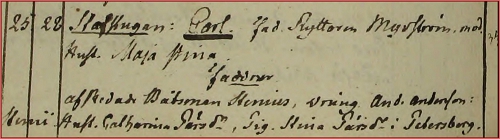 25 28 Stafstugan: Carl. fad. Ryttaren Myrström, mod.
Hust. Maja Stina
Faddrar
afskedade Båtsman Henius, dräng. And. Anderson:
Hust. Catharina Larsdr, Pig. Stina Larsdr i Petersberg.